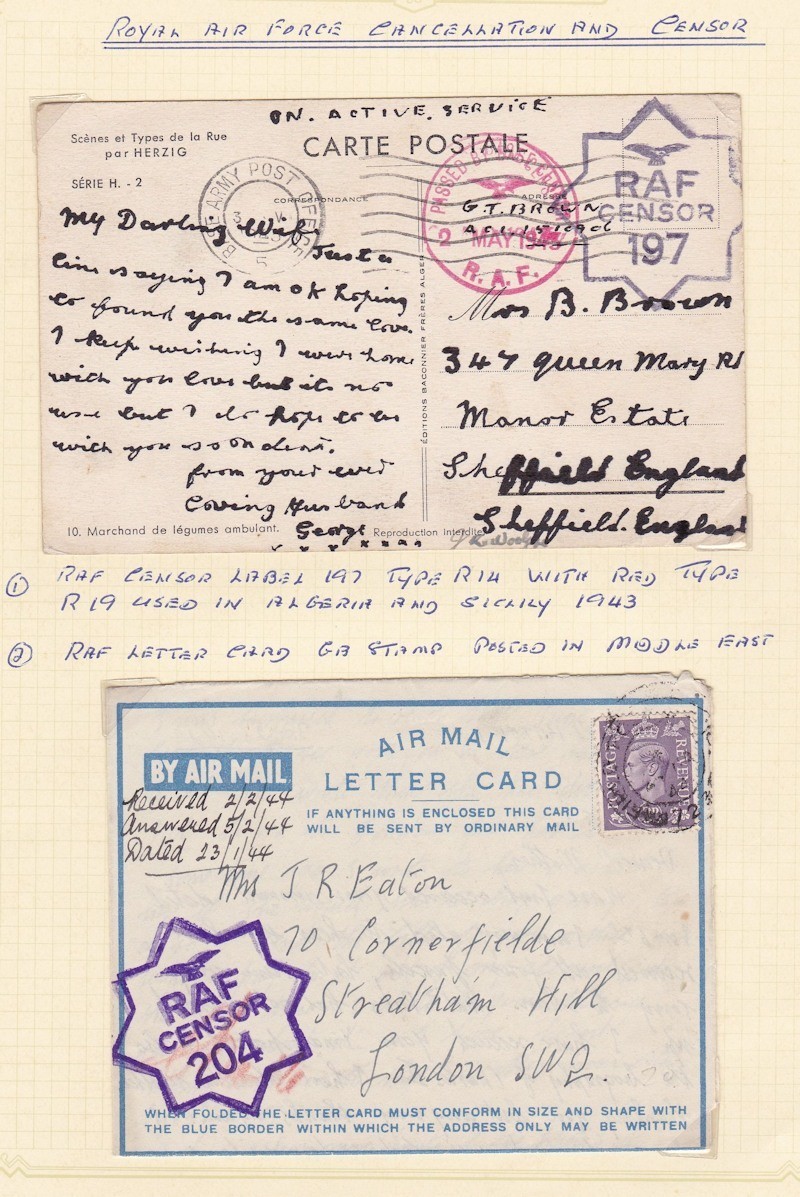 ROYAL AIR FORCE CANCELLATION AND CENSOR
ON. ACTIVE. SERVICE
Scènes et Types de la Rue
par HERZIG
SÉRIE H. - 2
CARTE POSTALE
CORRESPONDANCE
ADRESSE
ARMY POST OFFICE
PASSED BY CENSOR
2 MAY 1943
R.A.F.
G.T. BROWN
RAF
CENSOR
197
My Darling Wife
Just a
line saying I am ok hoping
to found you the same love.
I keep wishing I were home
with you love but its no
use but I do hope to be
with you soon dear.
from your ever
Loving Husband
George
x x x x x x x x
ÉDITIONS BACONNIER FRÈRES ALGER
Mrs B. Brown
347 Queen Mary Rd
Manor Estate
Sheffield England
Sheffield. England
10. Marchand de légumes ambulant.
Reproduction Interdite
① RAF CENSOR LABEL 197 TYPE R14 WITH RED TYPE
R19 USED IN ALGERIA AND SICILY 1943
② RAF LETTER CARD GB STAMP POSTED IN MIDDLE EAST
BY AIR MAIL
AIR MAIL
LETTER CARD
IF ANYTHING IS ENCLOSED THIS CARD
WILL BE SENT BY ORDINARY MAIL
POSTAGE REVENUE
Received 2/2/44
Answered 5/2/44
Dated 23/1/44
Mrs J R Eaton
70 Cornerfielde
Streatham Hill
London SW2.
RAF
CENSOR
204
WHEN FOLDED THE LETTER CARD MUST CONFORM IN SIZE AND SHAPE WITH
THE BLUE BORDER WITHIN WHICH THE ADDRESS ONLY MAY BE WRITTEN